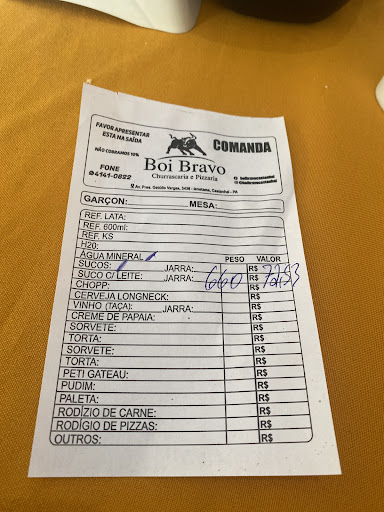 FAVOR APRESENTAR
ESTA NA SAÍDA
NÃO COBRAMOS 10%
FONE
4141-0822
COMANDA
Boi Bravo
Churrascaria e Pizzaria
Av. Pres. Getúlio Vargas, 3436 - Ianetama, Castanhal - PA
GARÇON: MESA:
REF. LATA:
REF. 600ml:
REF. KS
H20:
ÁGUA MINERAL PESO VALOR
SUCOS: JARRA: R$
SUCO C/ LEITE: JARRA: 660 R$ 72,53
CHOPP: R$
CERVEJA LONGNECK: R$
VINHO (TAÇA): JARRA: R$
CREME DE PAPAIA: R$
SORVETE: R$
TORTA: R$
SORVETE: R$
TORTA: R$
PETI GATEAU: R$
PUDIM: R$
PALETA: R$
RODÍZIO DE CARNE: R$
RODÍGIO DE PIZZAS: R$
OUTROS: R$